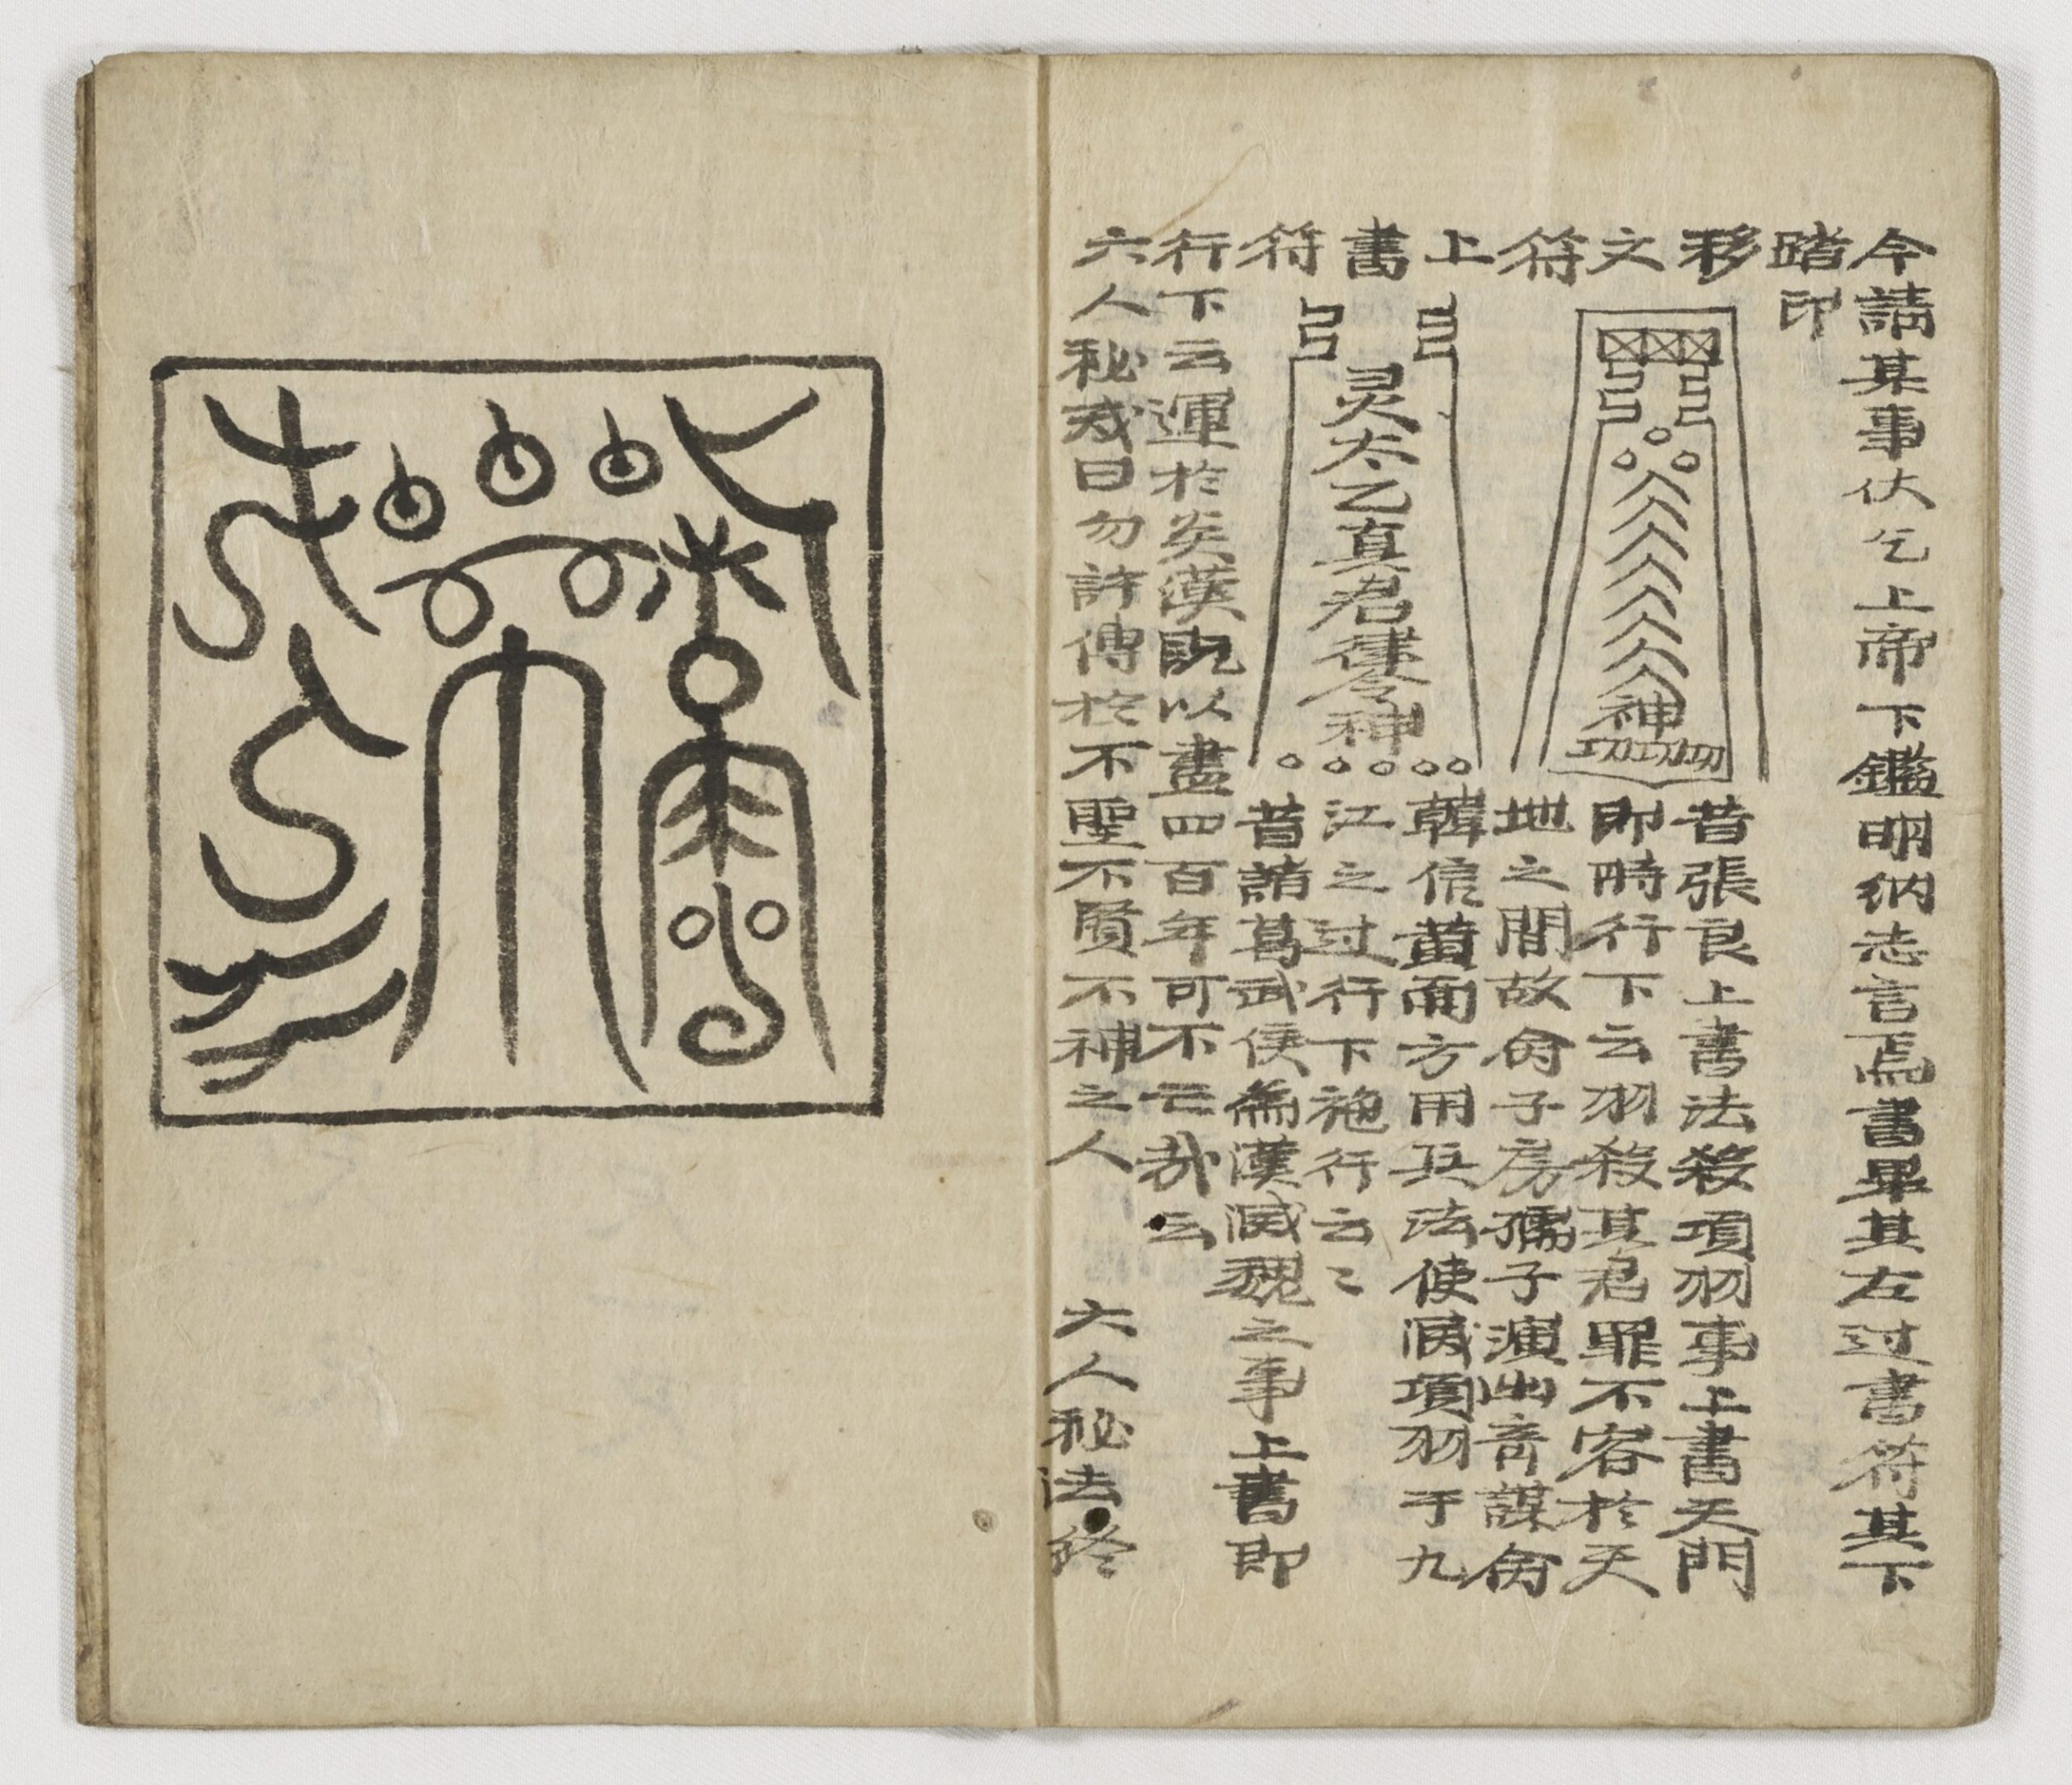 今請某事伏乞上帝下鑑明納志言焉書畢其左过書符其下
踏印
移文符
神
昔張良上書法殺項羽事上書天門
即時行下云羽殺其君罪不容於天
地之間故俞子房孺子演出奇謀俞
上書符
灵太乙真君律令神
韓信黄面方用兵法使滅項羽于九
江之过行下施行云〻
昔諸葛武侯為漢滅魏之事上書即
行下云運於炎漢既以盡四百年可不云哉云
六人秘戒曰勿許傳於不聖不賢不神之人 六人秘法終